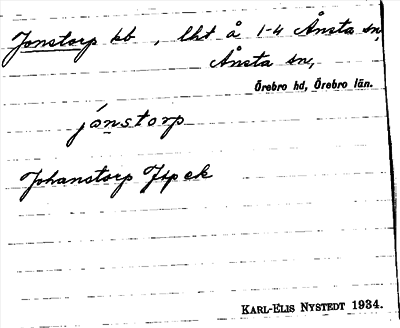 Jonstorp kb, lht å 1-4 Ånsta sn,
Ånsta sn,
Örebro hd, Örebro län.
jónstorp
Johanstorp Jfp ek
KARL-ELIS NYSTEDT 1934.